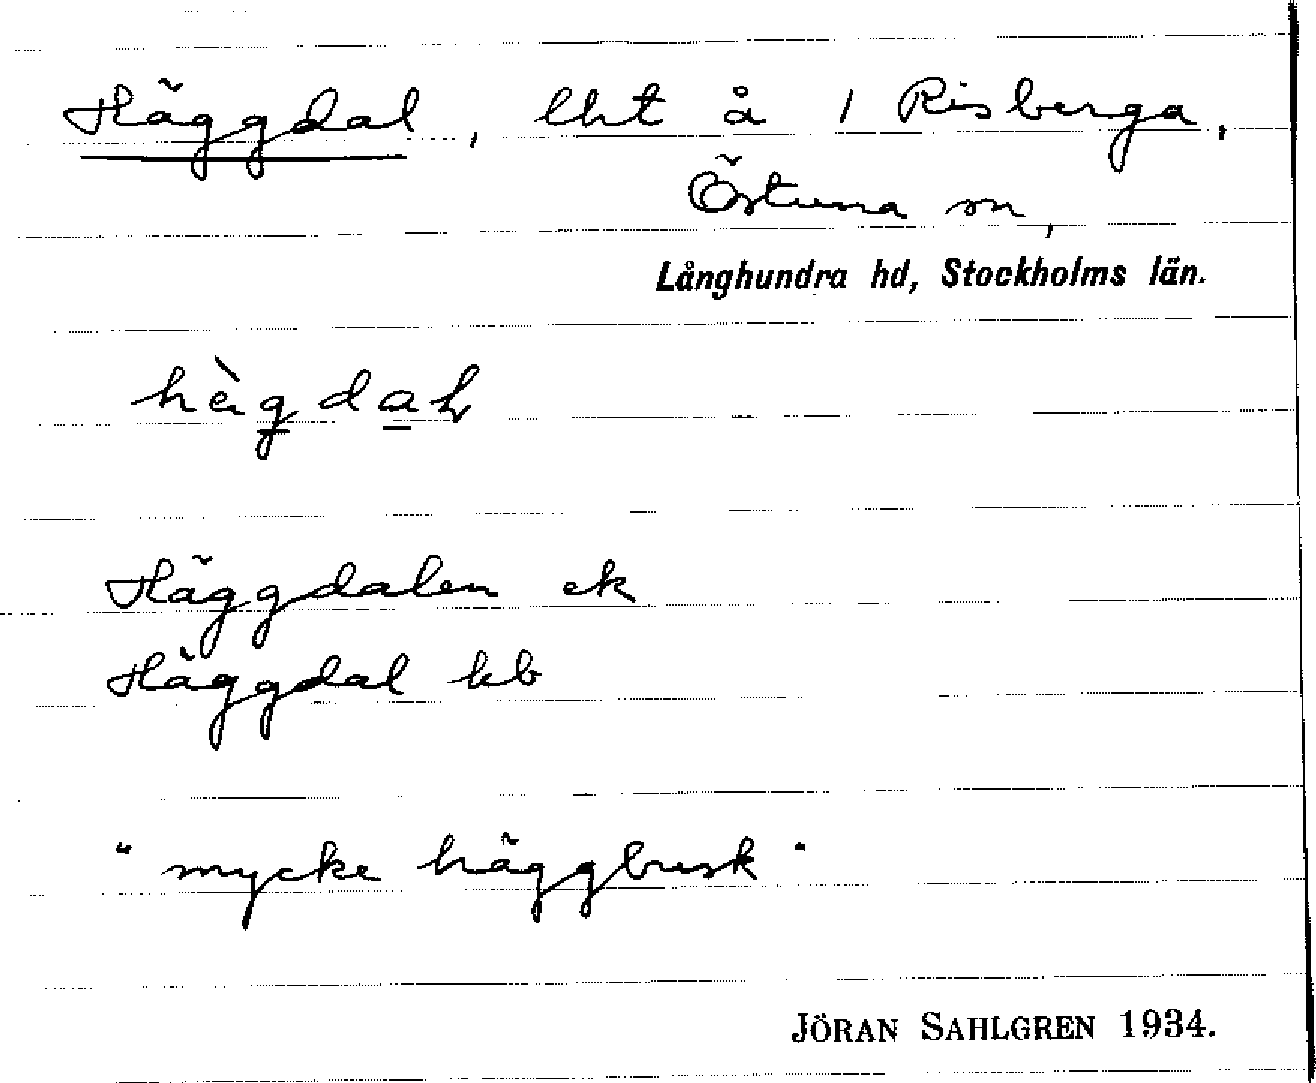 Häggdal, lht å 1 Risberga,
Östuna sn,
Långhundra hd, Stockholms län.
Häggdalen ek
Häggdal kb
"mycke häggbusk"
JÖRAN SAHLGREN 1934.